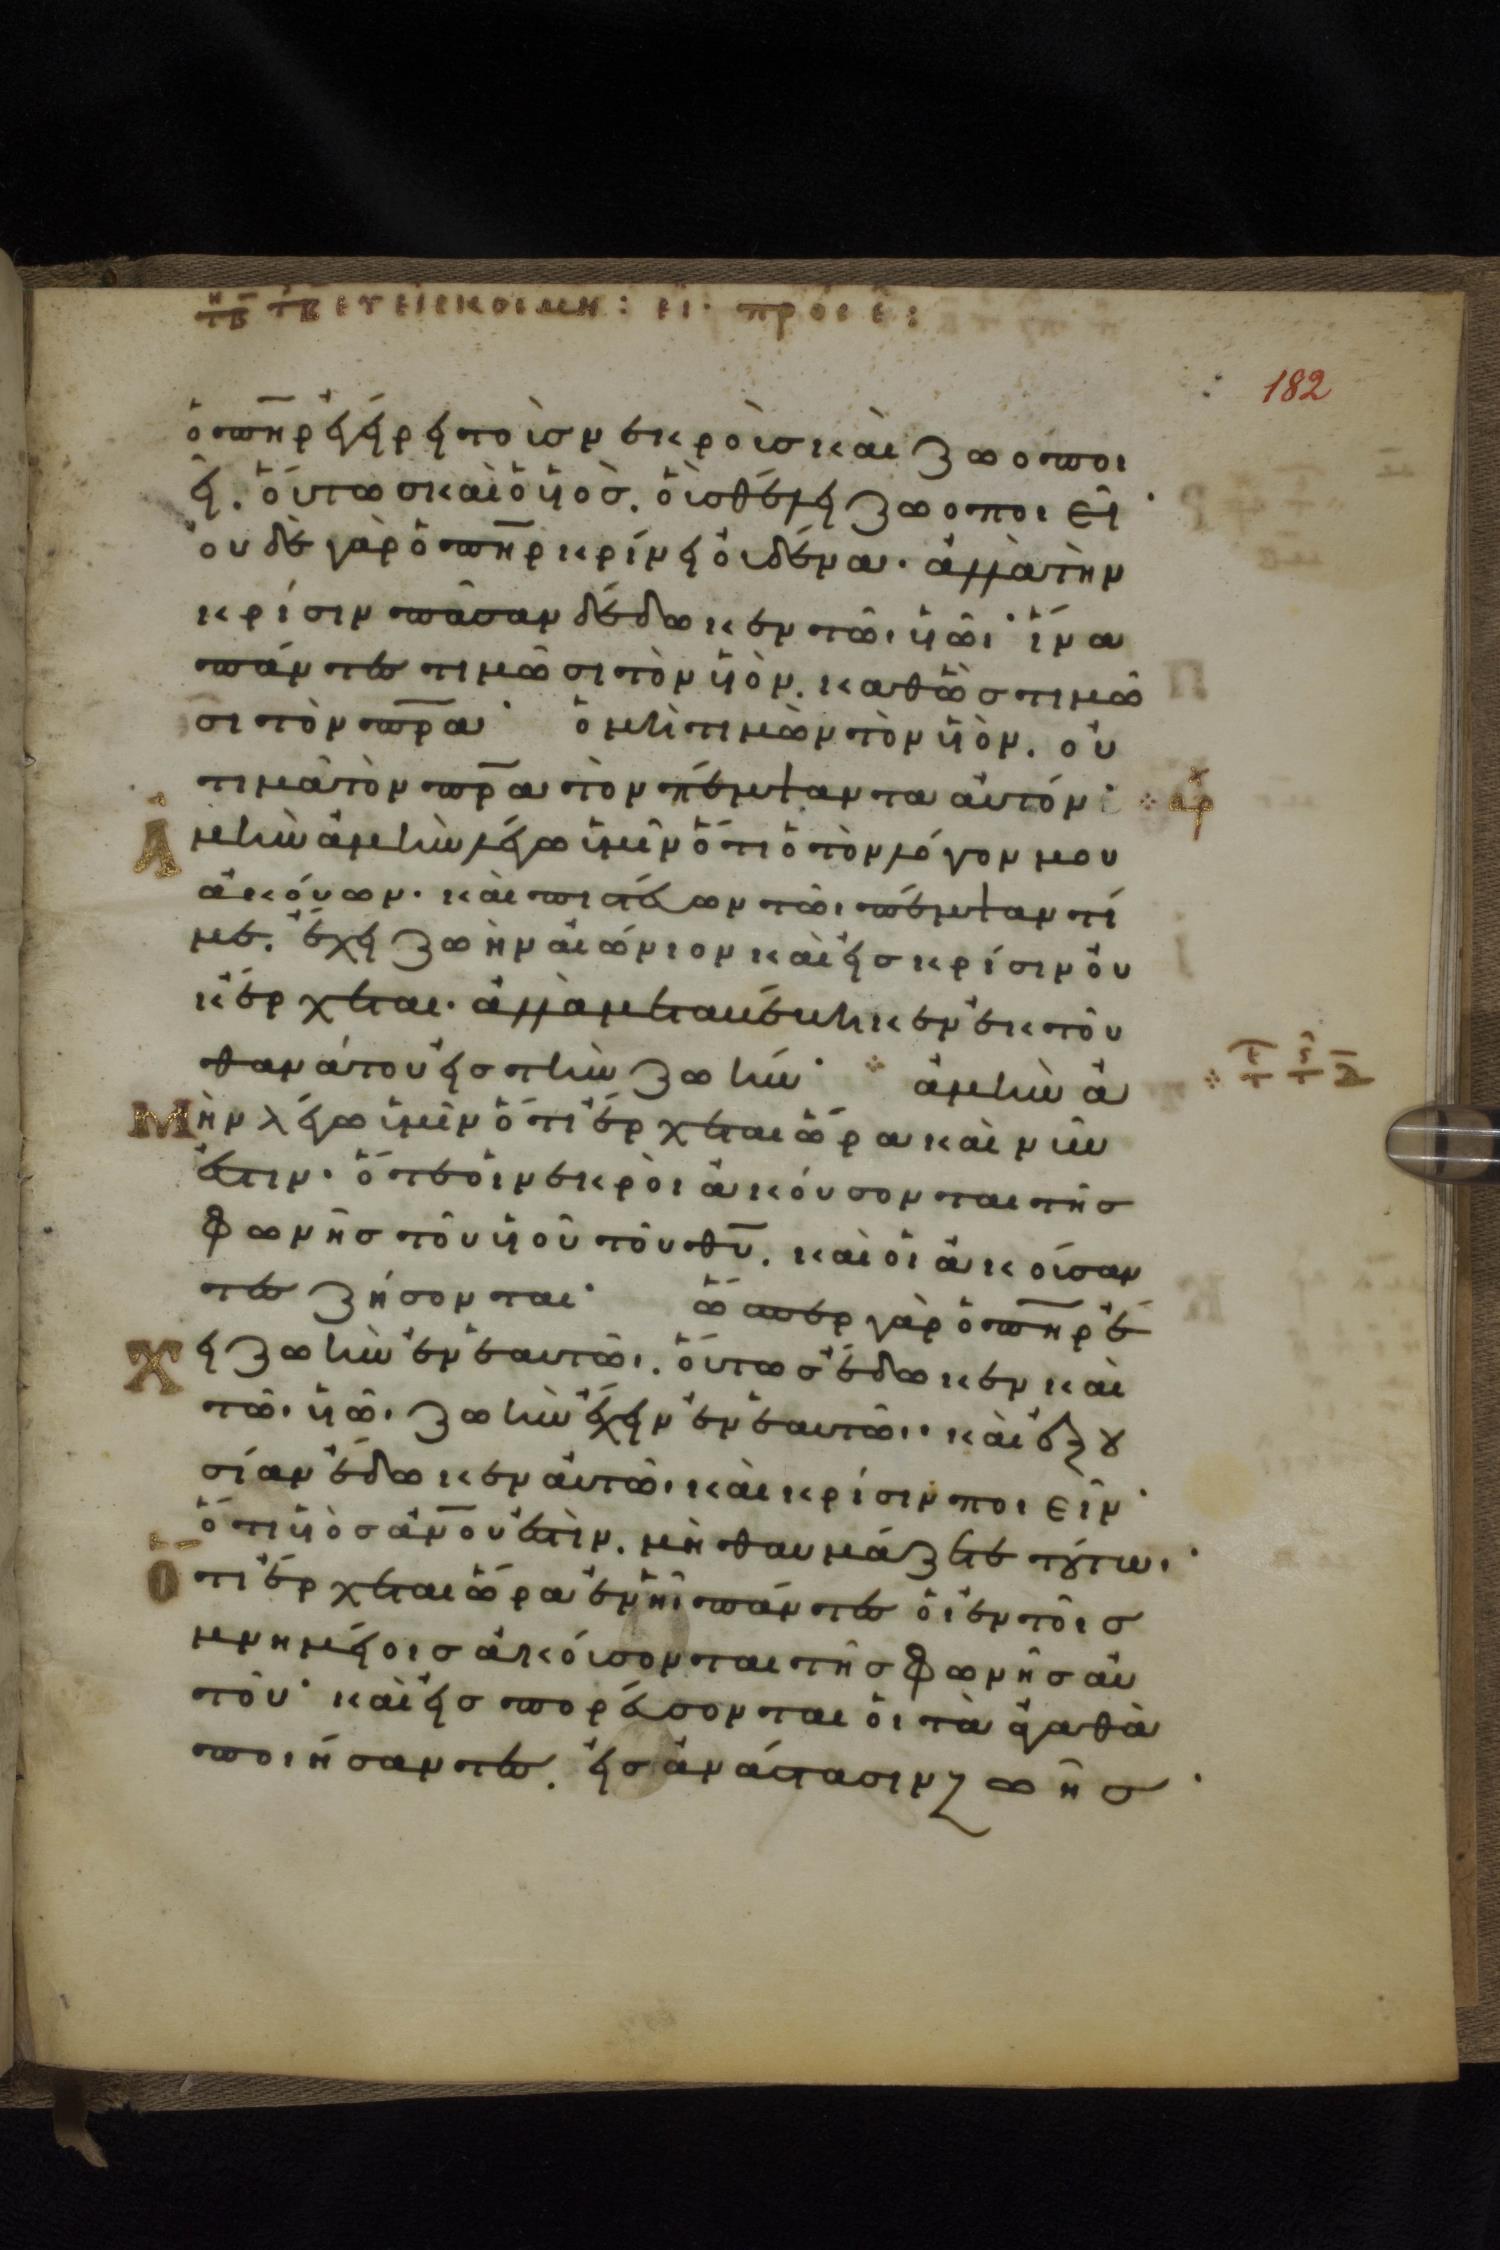 182
ὁ πη̅ρ ἐγείρει τοὺσ νεκροὺσ καὶ ζωοποι
εῖ. οὕτωσ καὶ ὁ υἱὸσ. οὓσ θέλει ζωοποιεῖ·
οὐδὲ γὰρ ὁ πη̅ρ κρίνει οὐδένα· ἀλλὰ τὴν
κρίσιν πᾶσαν δέδωκεν τῶι υἱῶι· ἵνα
πάντεσ τιμῶσι τὸν υἱὸν. καθὼσ τιμῶ
σι τὸν πρ̅α· ὁ μὴ τιμῶν τὸν υἱὸν. οὐ
τιμᾶ τὸν πρ̅α τὸν πέμψαντα αὐτόν· ἀρ
Ἀμὴν ἀμὴν λέγω ὑμῖν ὅτι ὁ τὸν λόγον μου
ἀκούων· καὶ πιστεύων τῶι πέμψαντί
με. ἔχει ζωὴν αἰώνιον καὶ εἰσ κρίσιν οὐ
κ ἔρχεται· ἀλλὰ μεταβέβηκεν ἐκ τοῦ
θανάτου εἰσ τὴν ζωήν· ἀμὴν ἀ
Μὴν λέγω ὑμῖν ὅτι ἔρχεται ὥρα καὶ νῦν
ἐστιν· ὅτε οἱ νεκροὶ ἀκούσονται τῆσ
φωνῆσ τοῦ υἱοῦ τοῦ θυ̅. καὶ οἱ ἀκούσαν
τεσ ζήσονται· ὥσπερ γὰρ ὁ πη̅ρ ἔ
Χει ζωὴν ἐν ἑαυτῶι. οὕτωσ ἔδωκεν καὶ
τῶι υἱῶι ζωὴν ἔχειν ἐν ἑαυτῶι· καὶ ἐξου
σίαν ἔδωκεν αὐτῶι καὶ κρίσιν ποιεῖν·
ὅτι υἱὸσ ἀν̅ου ἐστὶν. μὴ θαυμάζετε τοῦτω·
Ὅτι ἔρχεται ὥρα ἐν ἧι πάντεσ οἱ ἐν τοῖσ
μνημείοισ ἀκούσονται τῆσ φωνῆσ αὐ
τοῦ· καὶ ἐκπορεύσονται οἱ τὰ ἀγαθὰ
ποιήσαντεσ. εἰσ ἀνάστασιν ζωῆσ·